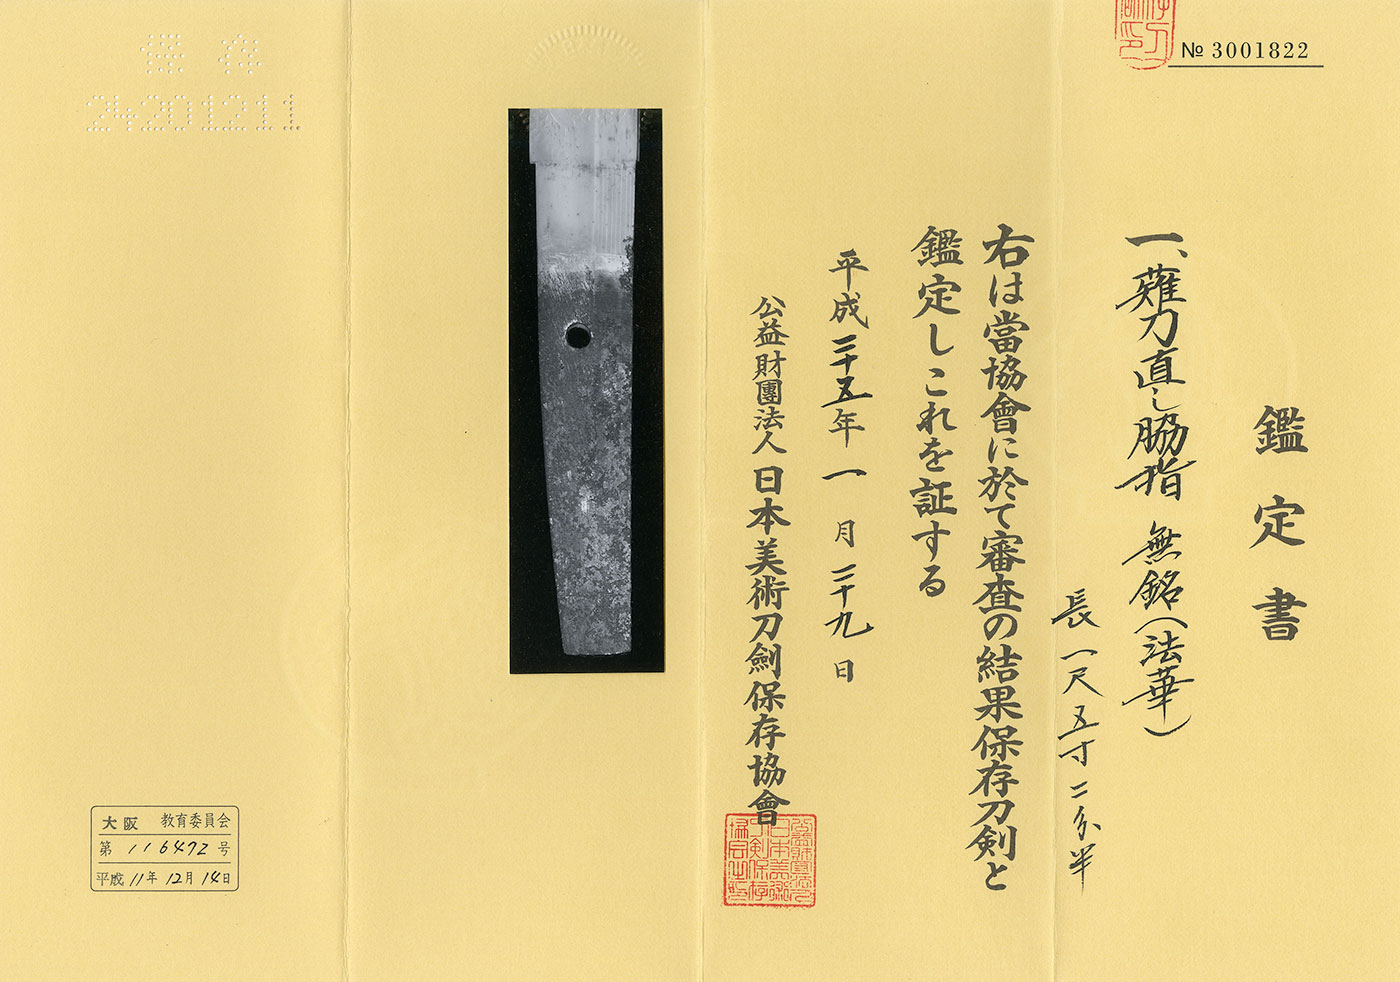 № 3001822
鑑定書
一、薙刀直し脇指 無銘(法華)
長一尺五寸二分半
右は當協會に於て審査の結果保存刀剣と
鑑定しこれを証する
平成二十五年一月二十九日
公益財團法人日本美術刀劍保存協會
保存
24201211
大阪 教育委員会
第 116472 号
平成 11年 12月 14日